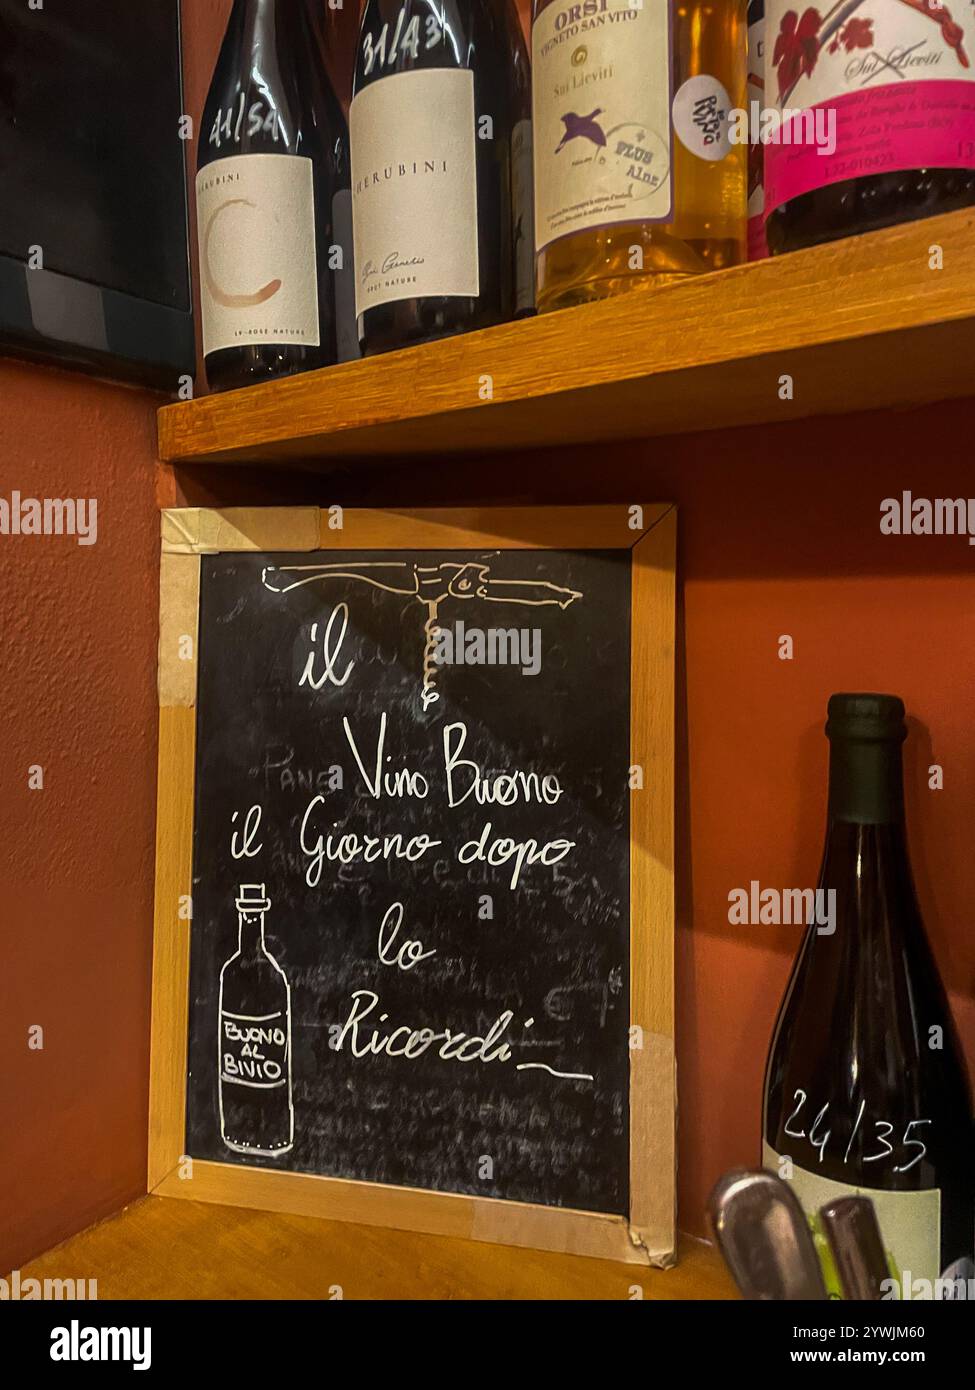 41/54
31/43
ORSI
VIGNETO SAN VITO
Sui Lieviti
PLUS
Sui Lieviti
CHERUBINI
BRUT NATURE
C
ROSÉ NATURE
il
Vino Buono
il Giorno dopo
lo
Ricordi
BUONO
AL
BIVIO
24/35
alamy
Image ID: 2YWJM60
www.alamy.com